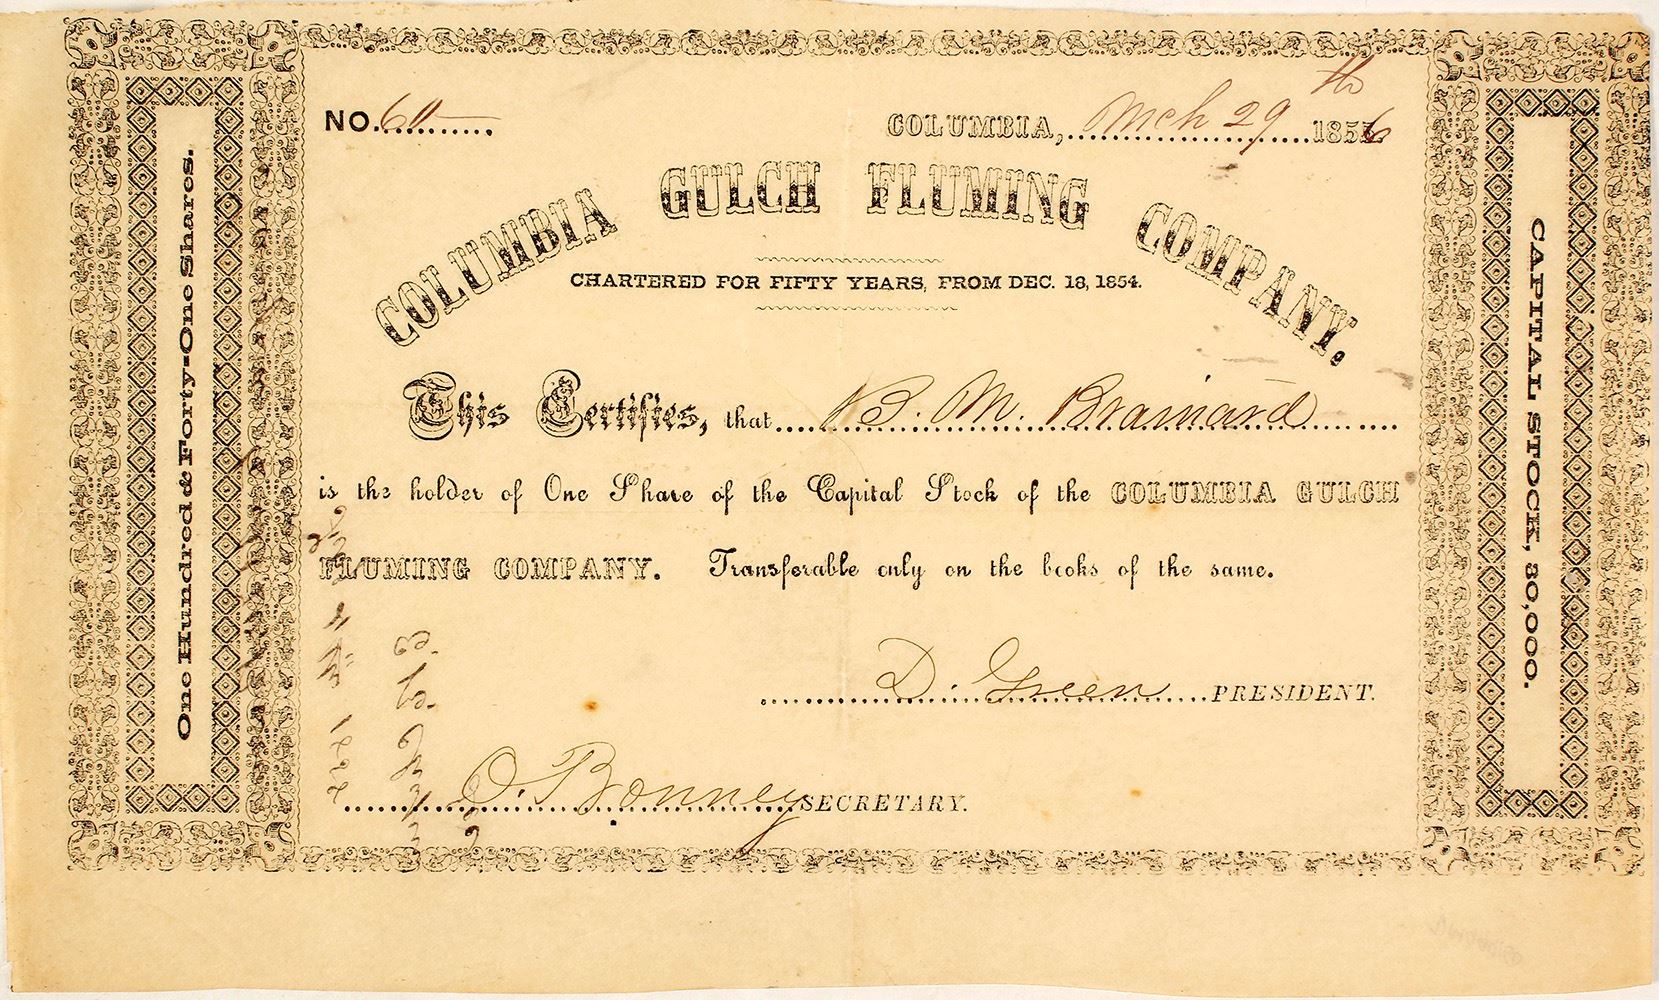 NO. 60
COLUMBIA, Mch 29th 1856
COLUMBIA GULCH FLUMING COMPANY.
CHARTERED FOR FIFTY YEARS, FROM DEC. 18, 1854.
This Certifies, that B. M. Brainard
is the holder of One Share of the Capital Stock of the COLUMBIA GULCH
FLUMING COMPANY. Transferable only on the books of the same.
D. Green PRESIDENT.
O. Bonney SECRETARY.
One Hundred & Forty-One Shares.
CAPITAL STOCK, 30,000.